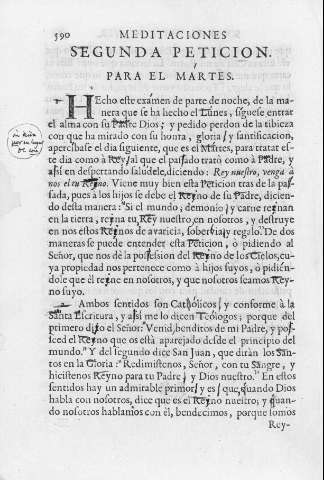 590 MEDITACIONES
SEGUNDA PETICION.
PARA EL MARTES.
Hecho este exámen de parte de noche, de la ma-
nera que se ha hecho el Lunes, siguese entrar
el alma con su Padre Dios; y pedido perdon de la tibieza
con que ha mirado con su honra, gloria, y santificacion,
apercibase el dia siguiente, que es el Martes, para tratar es-
te dia como à Rey, al que el passado tratò como à Padre, y
assi en despertando saludele, diciendo: Rey nuestro, venga à
nos el tu Reyno. Viene muy bien esta Peticion tras de la pas-
sada, pues à los hijos se debe el Reyno de su Padre, dicien-
do desta manera: Si el mundo, demonio, y carne reynan
en la tierra, reyna tu, Rey nuestro, en nosotros, y destruye
en nos estos Reynos de avaricia, sobervia, y regalo. De dos
maneras se puede entender esta Peticion, ò pidiendo al
Señor, que nos dè la possesion del Reyno de los Cielos, cu-
ya propiedad nos pertenece como à hijos suyos, ò pidien-
dole que èl reyne en nosotros, y que nosotros seamos Rey-
no suyo.
Ambos sentidos son Catholicos, y conforme à la
Santa Escritura, y assi me lo dicen Teólogos; porque del
primero dixo el Señor: Venid, benditos de mi Padre, y pos-
seed el Reyno que os està aparejado desde el principio del
mundo. Y del segundo dice San Juan, que diràn los San-
tos en la Gloria: Redimistenos, Señor, con tu Sangre, y
hicistenos Reyno para tu Padre, y Dios nuestro. En estos
sentidos hay un admirable primor, y es, que quando Dios
habla con nosotros, dice que es el Reyno nuestro; y quan-
do nosotros hablamos con èl, bendecimos, porque somos
Rey-